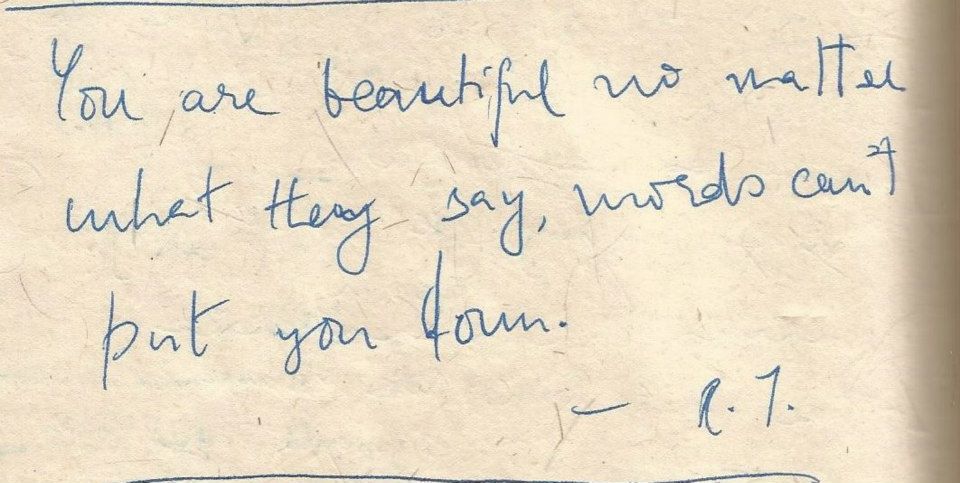 You are beautiful no matter
what they say, words can't
put you down.
— R.J.